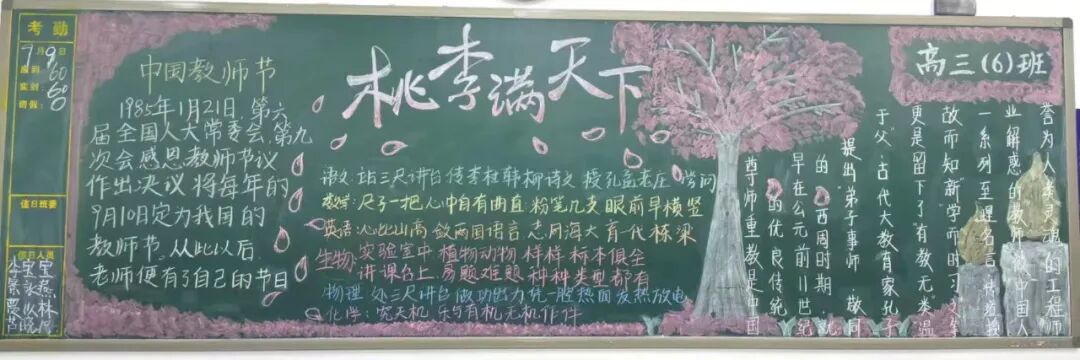 考勤
7月9日
应到 60
实到 60
请假 0
值日班委
值日人员
中国教师节
1985年1月21日,第六
届全国人大常委会,第九
次会感恩教师节议
作出决议 将每年的
9月10日定为我国的
教师节。从此以后
老师便有了自己的节日
桃李满天下
语文 站三尺讲台 传李杜韩柳诗文 授孔孟老庄学问
数学:尺子一把 心中自有曲直 粉笔几支 眼前早横竖
英语:心比山高 教两国语言 志同海大 育一代栋梁
生物:实验室中 植物动物 样样标本俱全
讲课台上 易题难题 种种类型都有
物理 处三尺讲台 做功出力 凭一腔热血 发热放电
化学:究天机 乐与有机无机作伴
高三(6)班
尊师重教是中国
的优良传统
早在公元前11世纪
的西周时期 就
提出弟子事师 敬同
于父 古代大教育家孔子
更是留下了有教无类 温
故而知新 学而时习之等
一系列至理名言
业解惑的教师被中国人
誉为人类灵魂的工程师